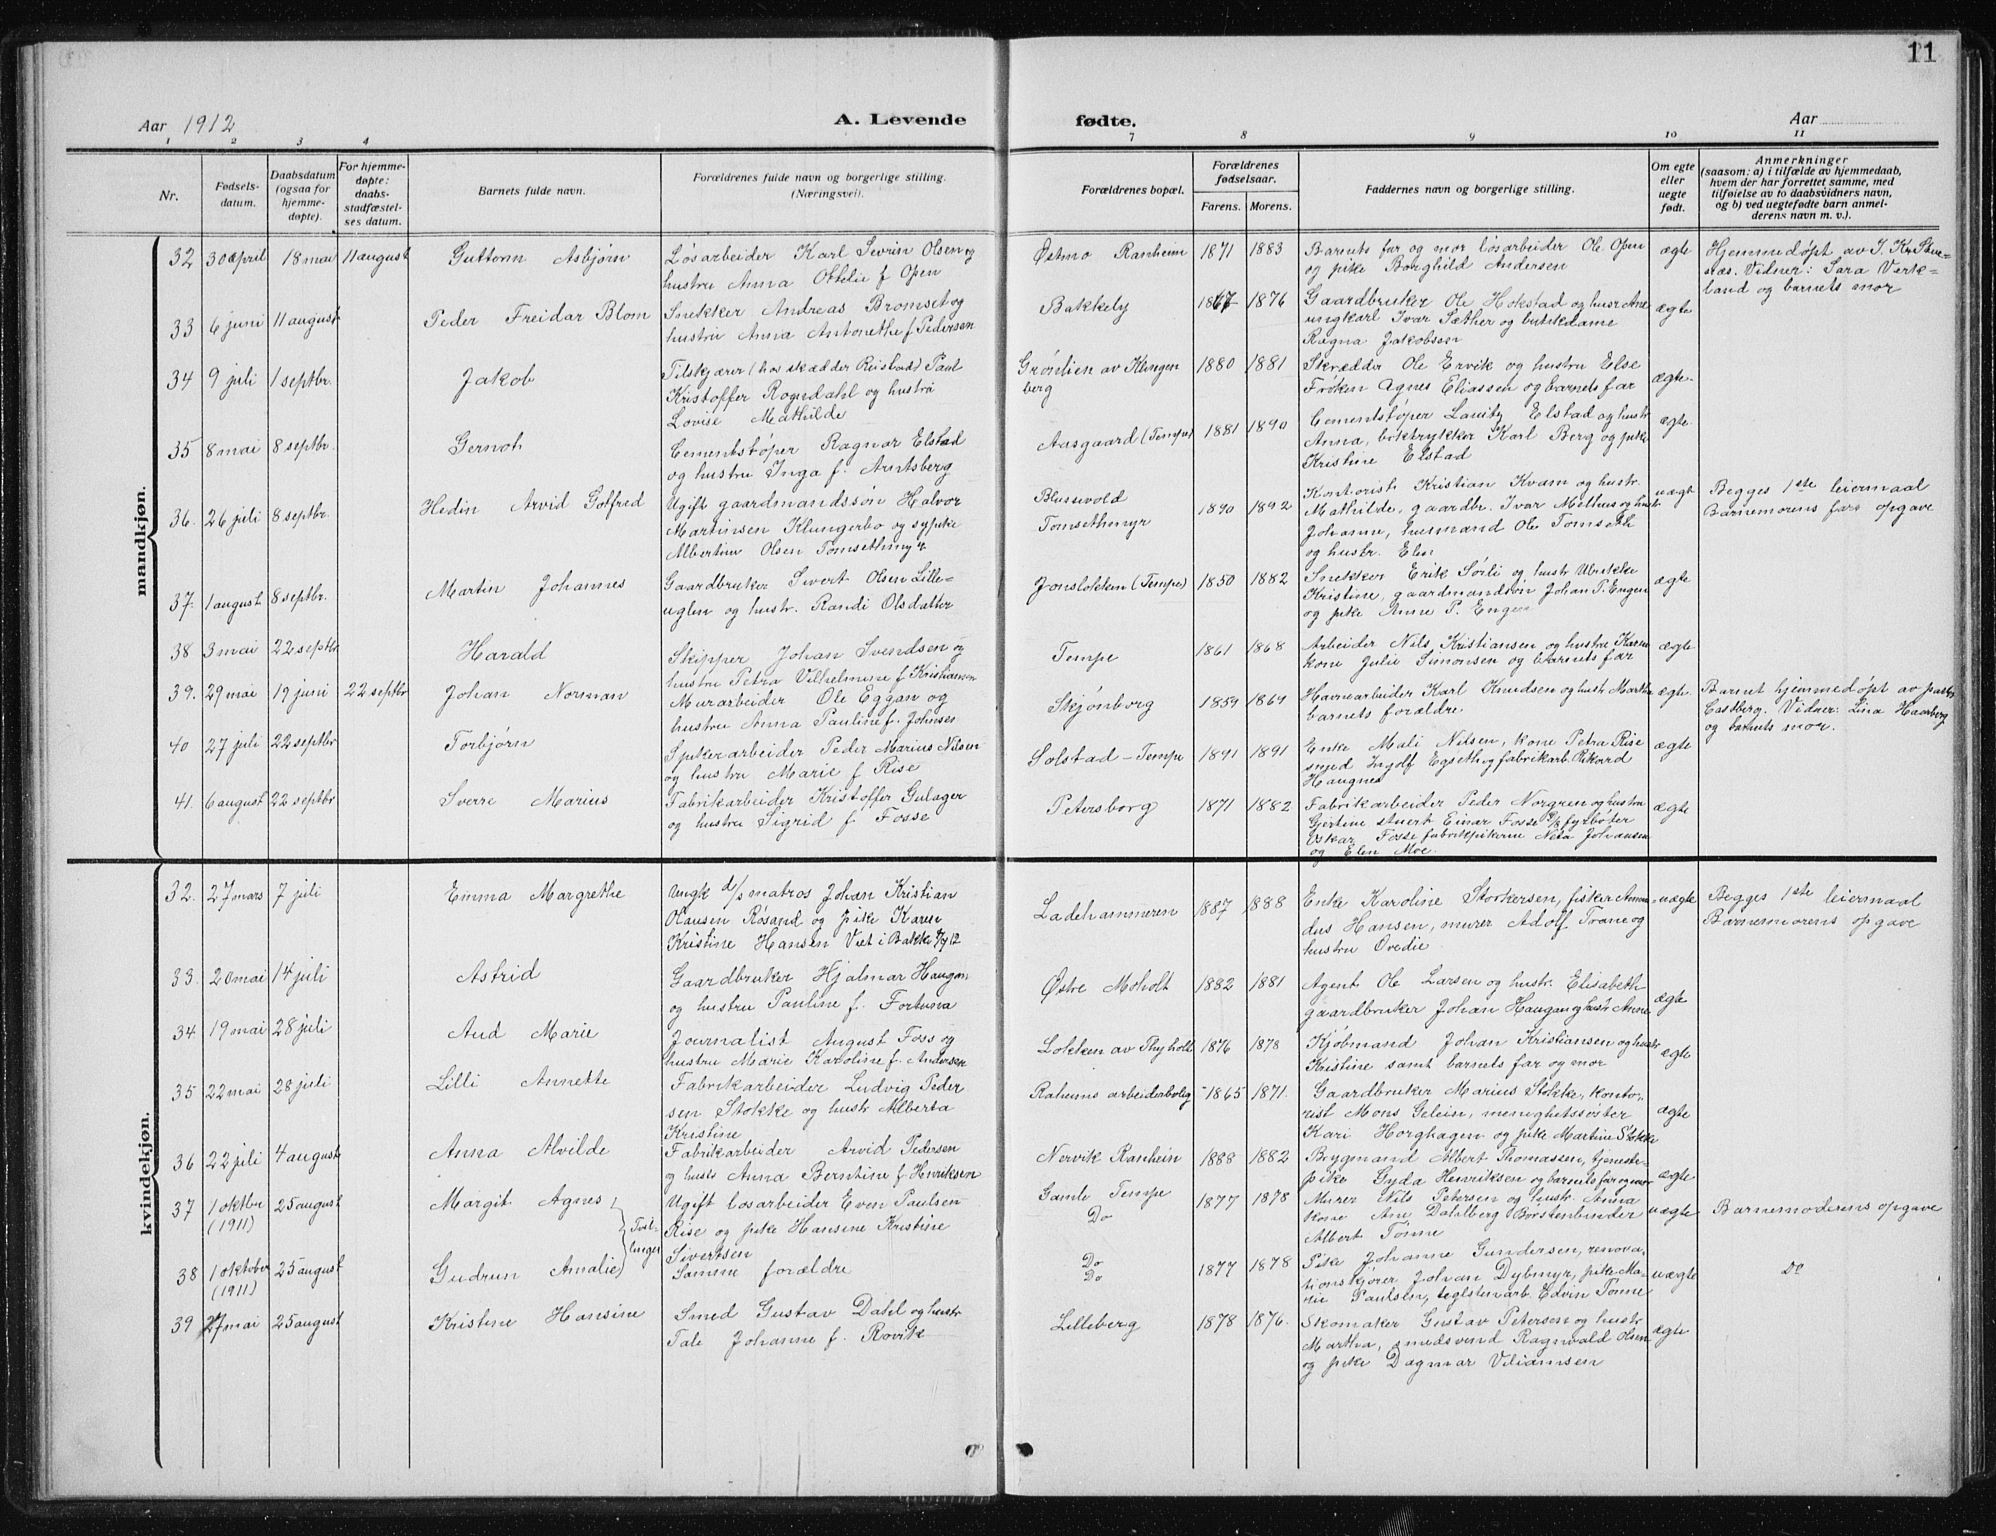 11
Aar 1912
A. Levende
fødte.
Aar
1 2 3 4 7 8 9 10 11
Nr.
Fødsels-
datum.
Daabsdatum
(ogsaa for
hjemme-
døpte).
For hjemme-
døpte:
daabs-
stadfæstel-
ses datum.
Barnets fulde navn.
Forældrenes fulde navn og borgerlige stilling.
(Næringsvei).
Forældrenes bopæl.
Forældrenes
fødselsaar.
Farens. Morens.
Faddernes navn og borgerlige stilling.
Om egte
eller
uegte
født.
Anmerkninger
(saasom: a) i tilfælde av hjemmedaab,
hvem der har forrettet samme, med
tilføielse av to daabsvidners navn,
og b) ved uegtefødte barn anmel-
derens navn m. v.).
mandkjøn.
32 30 april 18 mai 11 august Guttorm Asbjørn
Løsarbeider Karl Sevrin Olsen og
hustru Anna Ottelie f Open
Østmo Ranheim 1871 1883
Barnets far og mor løsarbeider Ole Open
og pike Borghild Andersen
ægte
Hjemmedøpt av J. Kr.
Vidner: Sara Verk-
land og barnets mor
33 6 juni 11 august Peder Freidar Blom
Snekker Andreas Bromset og
hustru Anna Antonethe f Pedersen
Bakkely 1867 1876
Gaardbruker Ole Hokstad og husr Ane
ungkarl Ivar Sæther og butikdame
Ragna Jakobssen
ægte
34 9 juli 1 septbr. Jakob
Tilskjærer (hos skædder Reistad) Paul
Kristoffer Rogndahl og hustru
Lovise Mathilde
Grønlien av Klingen
berg
1880 1881
Skrædder Ole Ervik og hustru Else
Frøken Agnes Eliassen og barnets far
ægte
35 8 mai 8 septbr. Gernoth
Cementstøper Ragnar Elstad
og hustru Inga f. Arntsberg
Aasgaard (Tempe) 1881 1890
Cementstøper Lauitz Elstad og hustr
Anna, boktrykker Karl Berg og pike
Kristine Elstad
ægte
36. 26 juli 8 septbr. Hedin Arvid Gotfred
Ugift gaardmandssøn Halvor
Martinsen Klungerbo og sypike
Albertine Olsen Tomsethmyr
Blussevold
Tomsethmyr
1890 1892
Kontorist Kristian Kvam og hustr.
Mathilde, gaardbr. Ivar Methus og hustr
Johanne, husmand Ole Tomseth
og hustr. Elen
uægt
Begges 1ste leiermaal
Barnemorens fars opgave
37. 1 august 8 septbr. Martin Johannes
Gaardbruker Sivert Olsen Lille-
uglen og hustr. Randi Olsdatter
Jonsløkken (Tempe) 1850 1882
Snekker Erik Sørli og hustr Ulrikke
Kristine, gaardmandsøn Johan P. Engen
og pike Anne P. Engen
ægte
38 3 mai 22 septbr Harald
Skipper Johan Svendsen og
hustru Petra Vilhelmine f Kristiansen
Tempe 1861 1868
Arbeider Nils Kristiansen og hustru Karen
kone Julie Simonsen og barnets far
ægte
39. 29 mai 19 juni 22 septbr Johan Norman
Murarbeider Ole Eggan og
hustru Anna Pauline f. Johnsen
Skjønborg 1859 1869
Havnearbeider Karl Knudsen og hustr Martha
barnets forældre
ægte
Barnet hjemmedøpt av pastor
Castberg. Vidner: Lina Haarberg
og barnets mor.
40 27 juli 22 septbr Torbjørn
Spikerarbeider Peder Marius Nilsen
og hustru Marie f Rise
Solstad - Tempe 1891 1891
Enke Mali Nilsen, kone Petra Rise
smed Ingolf Egseth og fabrikarb. Rikard
Haugnes
ægte
41. 6 august 22 septbr Sverre Marius
Fabrikarbeider Kristoffer Gulager
og hustru Sigrid f Fosse
Petersborg 1871 1882
Fabrikarbeider Peder Norgren og hustru
Gjertine stuert Einar Fosse fyrbøter
Oskar Fosse fabrikpikerne Neta Johansen
og Elen Moe.
ægte
kvindekjøn.
32. 27 mars 7 juli Emma Margrethe
Ungk d/s matros Johan Kristian
Olausen Røsand og pike Karen
Kristine Hansen Viet i Bakke
Ladehammeren 1887 1888
Enke Karoline Storkersen, fisker Aman-
dus Hansen, murer Adolf Trane og
hustru Ovedie
uægte
Begges 1ste leiermaal
Barnemorens opgave
33. 20 mai 14 juli Astrid
Gaardbruker Hjalmar Haugan
og hustru Pauline f. Fortuna
Østre Moholt 1882 1881
Agent Ole Larsen og hustr. Elisabeth
gaardbruker Johan Haugan og hustr Anne
ægte
34. 19 mai 28 juli Aud Marie
Journalist August Foss og
hustru Marie Karoline f. Andersen
Løkken av Thyholt 1876 1878
Kjøbmand Johan Kristiansen og hustr
Kristine samt barnets far og mor
ægte
35 22 mai 28 juli Lilli Annette
Fabrikarbeider Ludvig Peder
sen Stokke og hustr Alberta
Kristine
Raheims arbeiderbolig 1865 1871.
Gaardbruker Marius Stokke, konto-
rist Mons Gelein, menighetssøster
Kari Horghagen og pike Martine Stokke
ægte
36 22 juli 4 august Anna Alvilde
Fabrikarbeider Arvid Pedersen
og hustr Anna Berntine f Henriksen
Nervik Ranheim 1888 1882
Brygmand Albert Thomassen, tjeneste-
pike Gyda Henriksen og barnets far og mor
ægte
37 1 oktbr (1911) 25 august Margit Agnes
Tvil-
linger
Ugift løsarbeider Even Paulsen
Rise og pike Hansine Kristine
Sivertsen
Gamle Tempe
Do
1877 1878
Murer Nils Petersen og hustr. Anna
kone Ane Dahlberg Børstenbinder
Albert Tønne
uægte
Barnemoderens opgave
38 1 oktober (1911) 25 august Gudrun Amalie
Samme forældre
Do
Do
1877 1878
Pike Johanne Gundersen, renova-
tionskjører Johan Dybmyr, pike Ma-
rie Paulsen, teglstenarb. Edvin Tønne
uægte
Do
39 27 mai 25 august Kristine Hansine
Smed Gustav Dahl og hustr
Tale Johanne f. Rørvik
Lilleberg 1878 1876.
Skomaker Gustav Petersen og hustr
Martha, smedsvend Ragnvald Olsen
og pike Dagmar Viliamsen
ægte